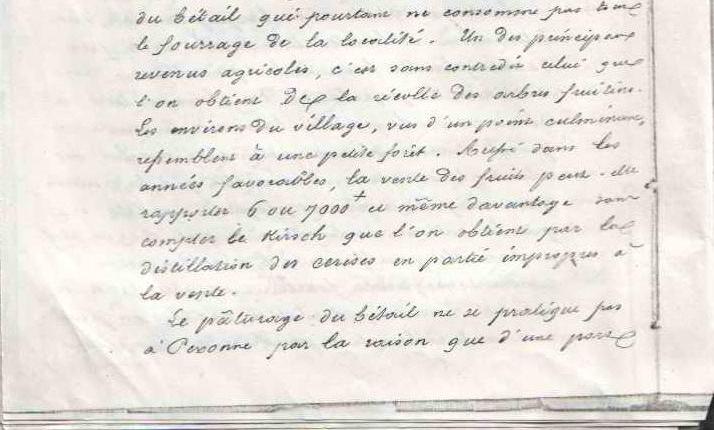 du bétail qui pourtant ne consomme pas tout
le fourrage de la localité. Un des principaux
revenus agricoles, c'est sans contredit celui que
l'on obtient De la récolte des arbres fruitiers.
Les environs du village, vus d'un point culminant,
ressemblent à une petite forêt. Aussi dans les
années favorables, la vente des fruits peut-elle
rapporter 6 ou 7000 et même davantage sans
compter le Kirsch que l'on obtient par la
distillation des cerises en partie impropres à
la vente.
Le pâturage du bétail ne se pratique pas
à Peronne par la raison que d'une part